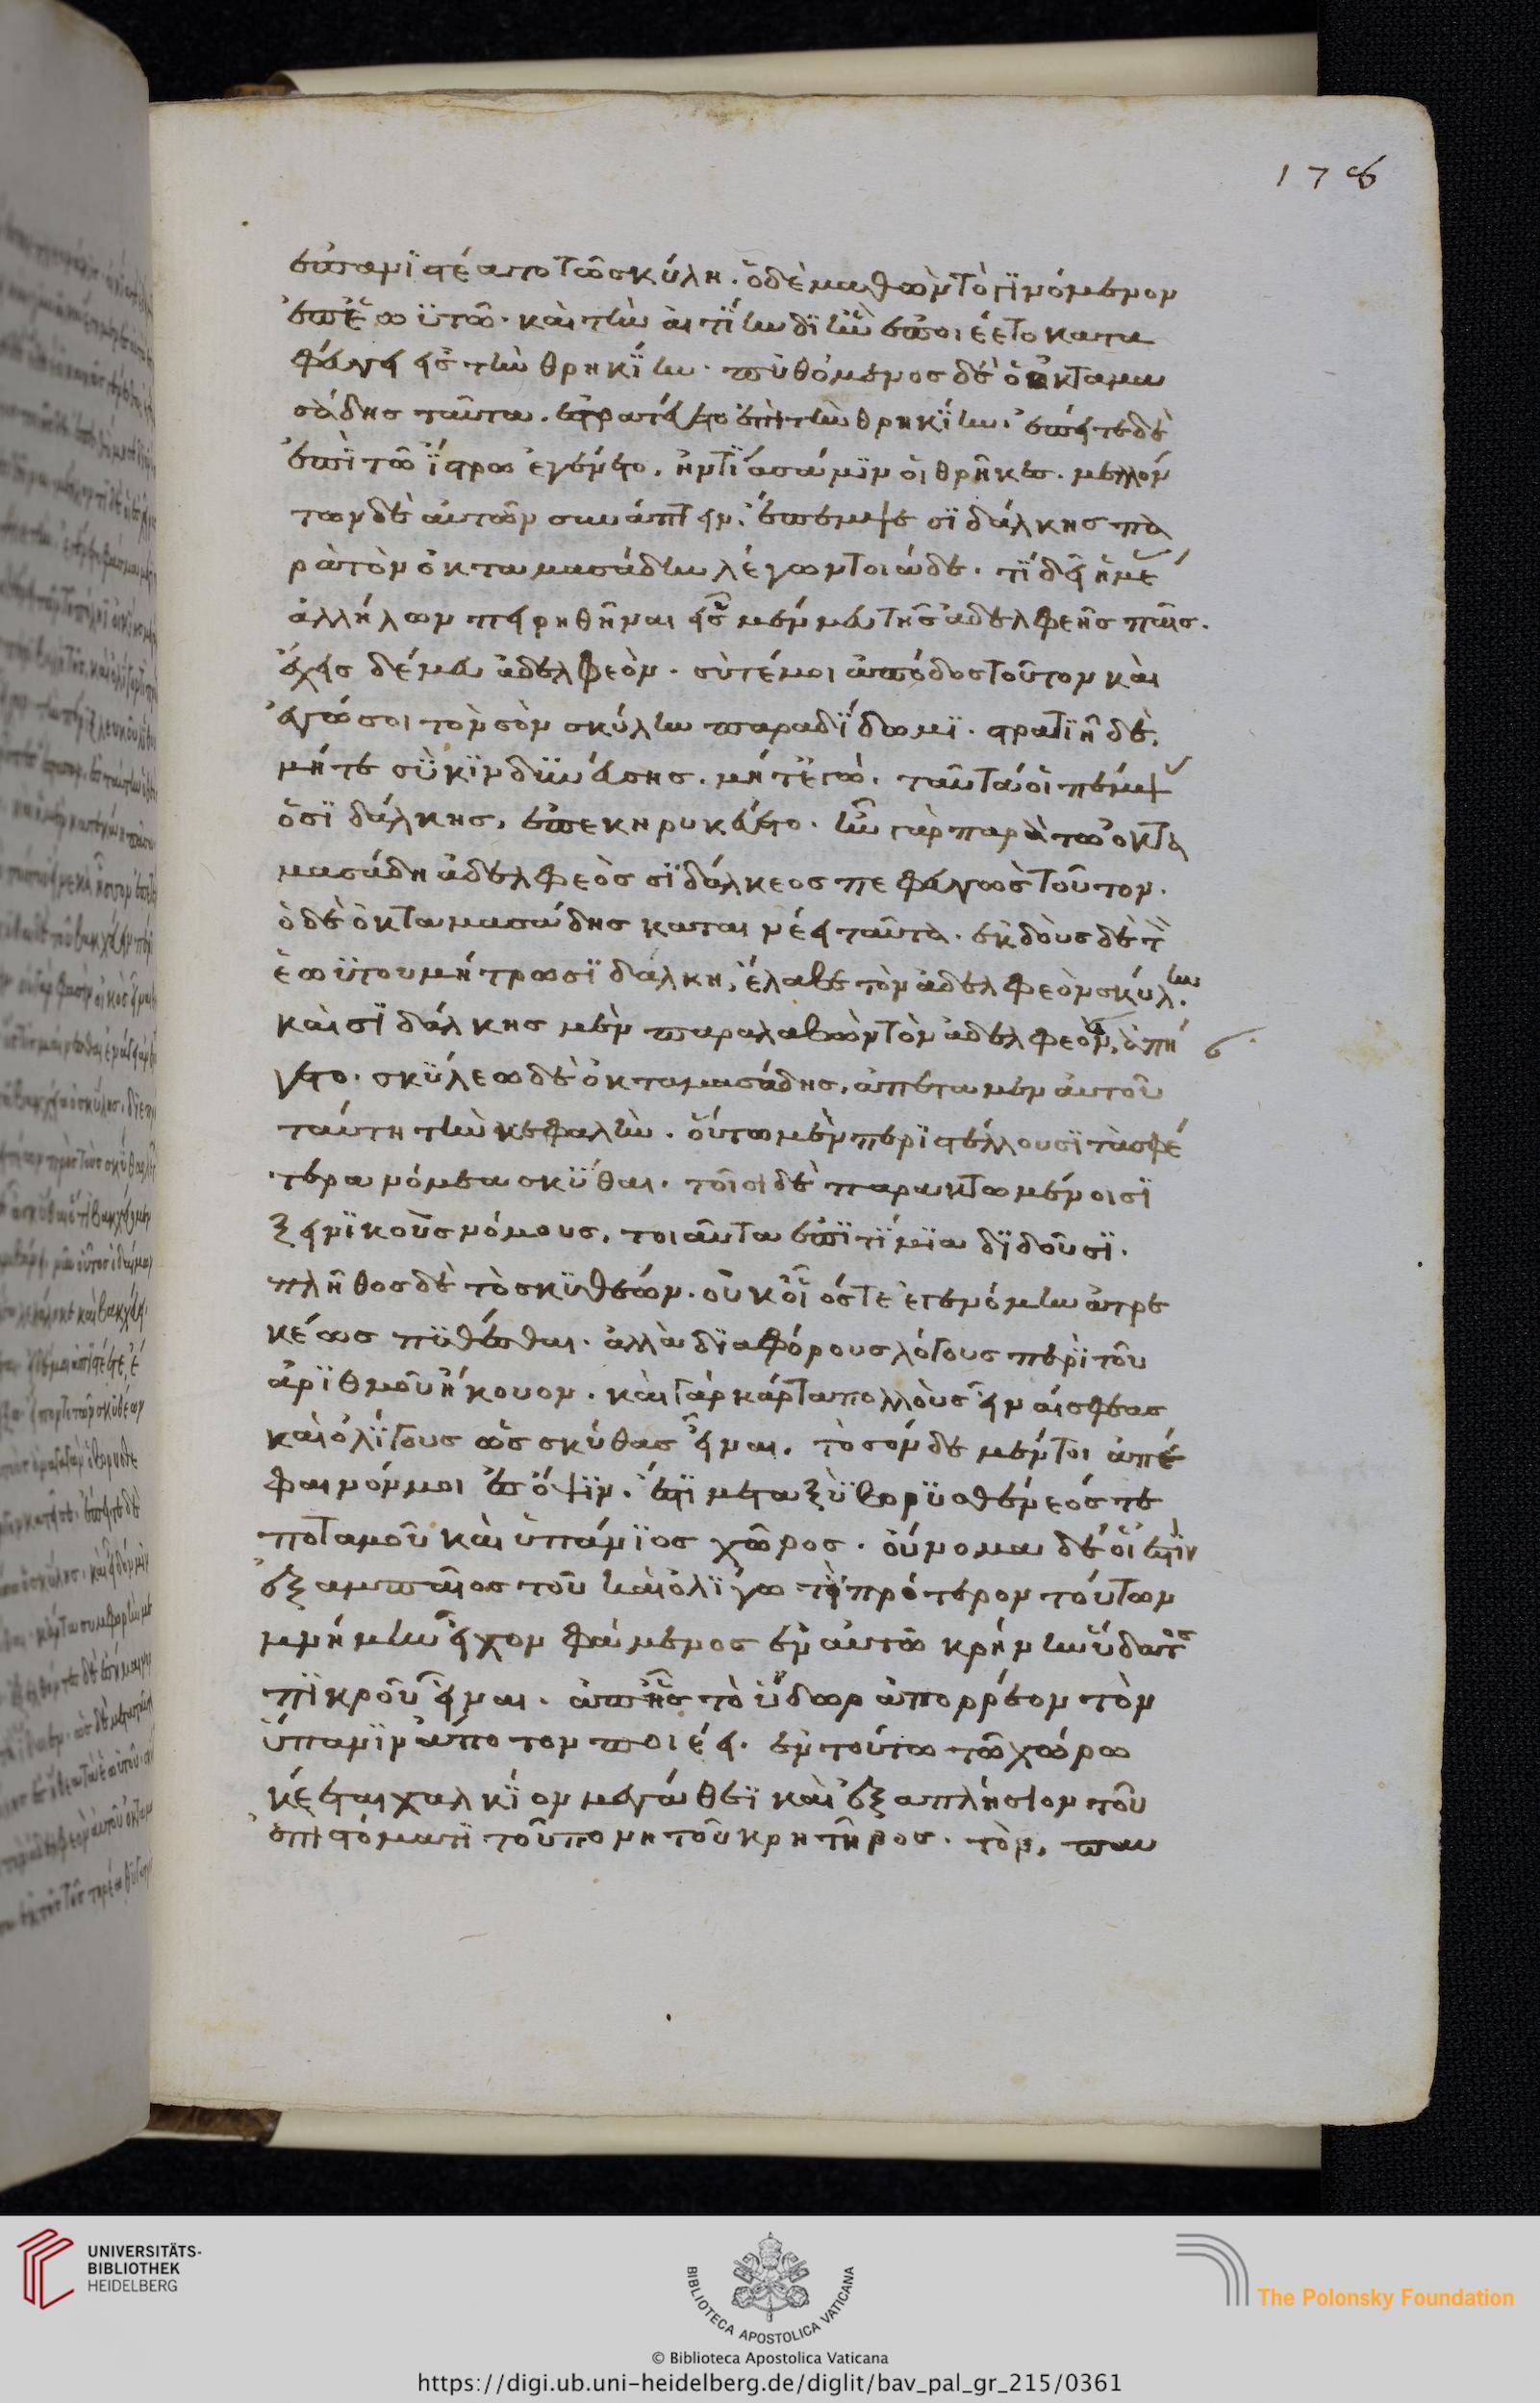 επανιστέατο τῶ σκύλη. ὁ δὲ μαθὼν τὸ γϊνόμενον
ἐπ' ἑωϋτῶ. καὶ τὴν ἀιτΐην δϊ ἣν ἐποιέετο κατα
φέυγει ἐς τὴν θρηκΐην. πυθόμενος δὲ ὁ ὀκταμα
σάδης ταῦτα. ἐστρατέυετο ἐπὶ τὴν θρηκΐην. ἐπείτε δὲ
ἐπὶ τῶ ΐστρω ἐγένετο, ἠντΐασάν μϊν ὁι θρῆκες. μελλόν
των δὲ ἀυτῶν συνάπτειν, ἔπεμψε σϊδάλκης πα
ρὰ τὸν ὀκταμασάδην λέγων τοιάδε. τΐ δεῖ ἡμέ
ἀλλήλων πειρηθῆναι εἶς μέν μευ τῆς ἀδελφεῆς παῖς.
ἔχεις δέ μευ ἀδελφεόν. σὺ τέ μοι ἀπόδος τοῦτον καὶ
ἐγώ σοι τὸν σὸν σκύλην παραδΐδωμϊ. στρατϊῆ δὲ,
μήτε σὺ κϊνδϋνέυσης. μήτ' ἐγώ. ταῦτά ὁι πέμψ
ὁ σϊδάλκης, ἐπεκηρυκέυετο. ἦν γὰρ παρὰ τῶ ὀκτα
μασάδη ἀδελφεὸς σϊδάλκεος πεφευγὼς τοῦτον.
ὁ δὲ ὀκταμασάδης καταινέει ταῦτα. ἐκδοὺς δὲ τὸ
ἑωϋτου μήτρω σϊδάλκη, ἔλαβε τὸν ἀδελφεὸν σκύλην.
καὶ σϊδάλκης μὲν παραλαβὼν τὸν ἀδελφεὸν, ἀπή
γετο. σκύλεω δὲ ὀκταμασάδης, ἀπέταμεν ἀυτοῦ
ταύτη τὴν κεφαλὴν. ὅυτω μὲν περϊστέλλουσϊ τὰ σφέ
τερα νόμεα σκύθαι. τοῖσι δὲ παρακτωμένοισϊ
ξεινϊκοὺς νόμους, τοιαῦτα ἐπϊτΐμϊα δϊδοῦσϊ.
πλῆθος δὲ τὸ σκϋθέων. ὀυκ ὅιός τε ἐγενόμην ἀτρε
κέως πϋθέσθαι. ἀλλὰ δϊαφόρους λόγους περὶ τοῦ
ἀρϊθμοῦ ἤκουον. καὶ γὰρ κάρτα πολλοὺς εἶναι σφεας
καὶ ὀλΐγους ὡς σκύθας εἶναι. τοσόνδε μέντοι ἀπέ
φαινόν μοι ἐς ὄψϊν. ἔστϊ μεταξὺ βορϋσθένεός τε
ποταμοῦ καὶ ὑπάνϊος χῶρος. ὄυνομα δέ ὁι ἐστὶν
ἐξαμπαῖος τοῦ καὶ ὀλΐγω τϊ πρότερον τούτων
μνήμην εἶχον φάμενος ἐν ἀυτῶ κρήνην ὕδατος
πϊκροῦ εἶναι. ἀπ' ἧς τὸ ὕδωρ ἀπορρέον τὸν
ὕπανϊν ἄποτον ποιέει. ἐν τούτω τῶ χώρω
κέεται χαλκΐον μεγάθεϊ καὶ ἑξαπλήσιον τοῦ
ἐπὶ στόματϊ τοῦ πόνη τοῦ κρητῆρος. τὸν, παυ
178
UNIVERSITÄTS-
BIBLIOTHEK
HEIDELBERG
BIBLIOTECA APOSTOLICA VATICANA
© Biblioteca Apostolica Vaticana
The Polonsky Foundation
https://digi.ub.uni-heidelberg.de/diglit/bav_pal_gr_215/0361